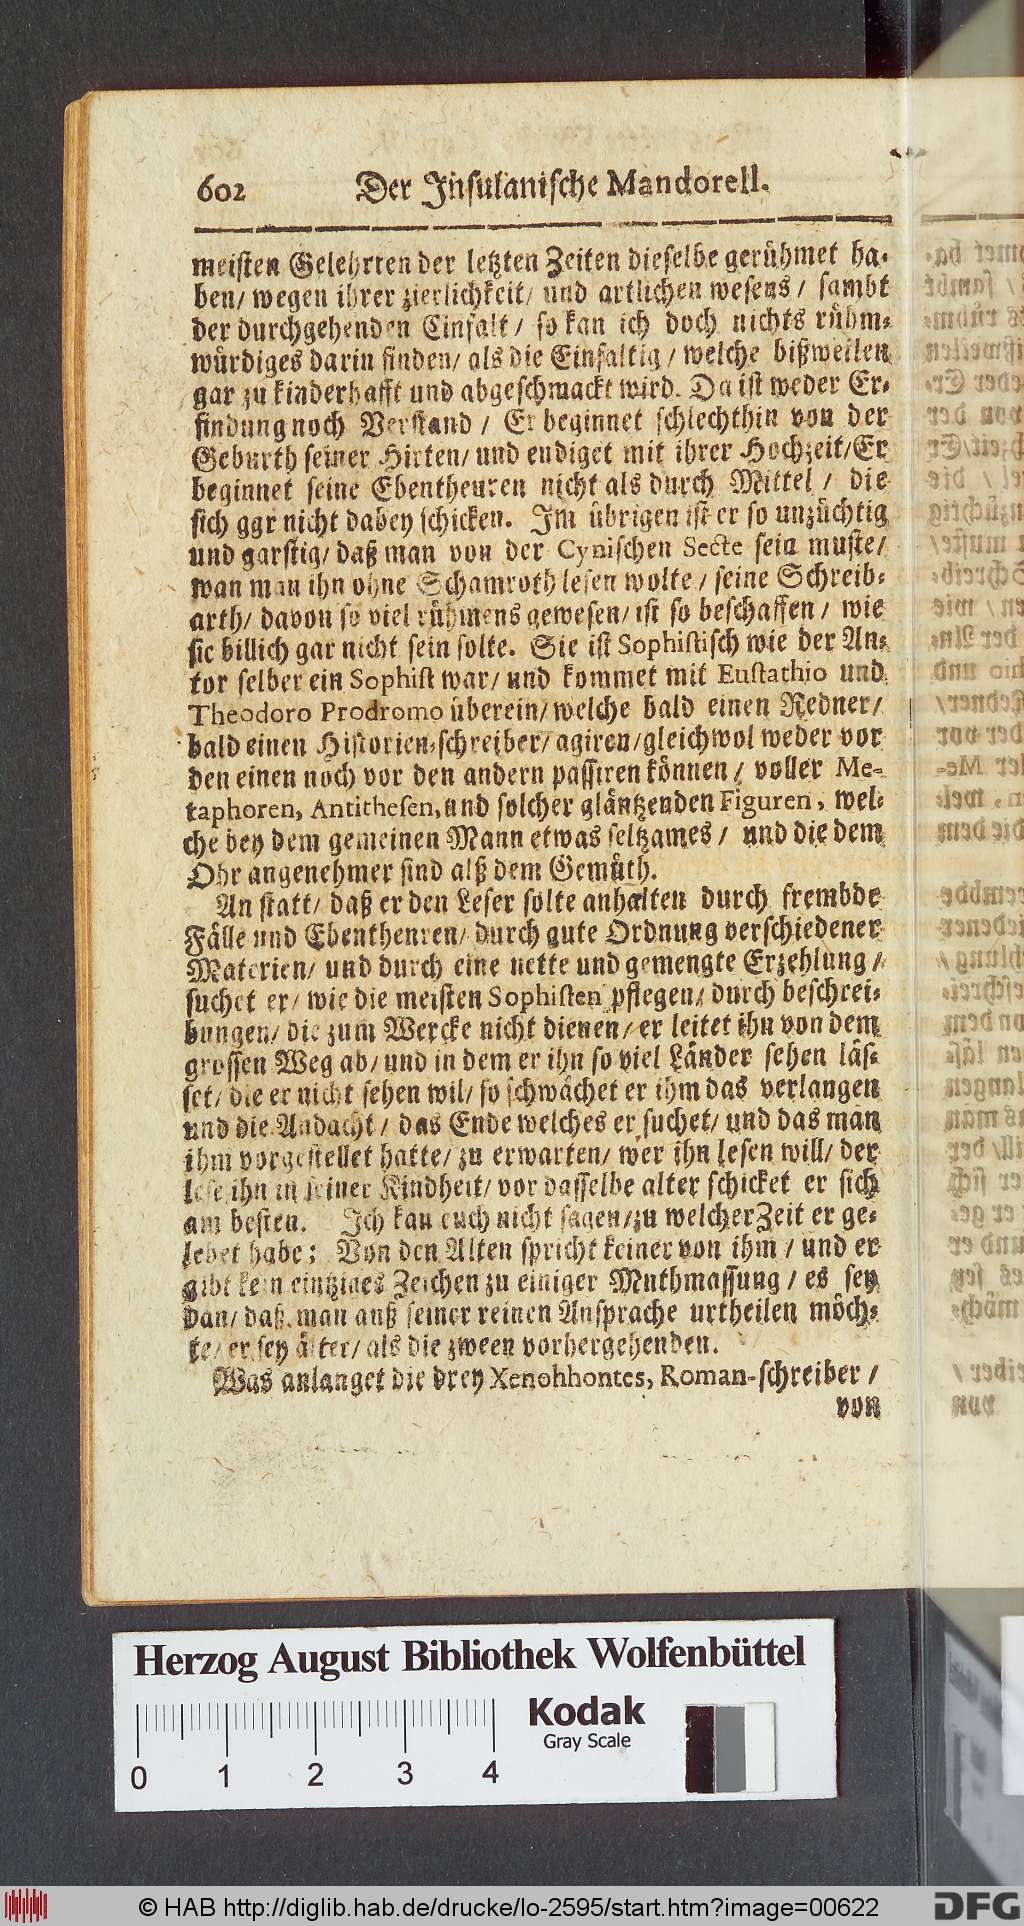 602 Der Insulanische Mandorell.
meisten Gelehrten der letzten Zeiten dieselbe gerühmet ha-
ben/ wegen ihrer zierlichkeit/ und artlichen wesens / sambt
der durchgehenden Einfalt / so kan ich doch nichts rühm-
würdiges darin finden/ als die Einfaltig / welche bißweilen
gar zu kinderhafft und abgeschmackt wird. Da ist weder Er-
findung noch Verstand / Er beginnet schlechthin von der
Geburth seiner Hirten/ und endiget mit ihrer Hochzeit/Er
beginnet seine Ebentheuren nicht als durch Mittel / die
sich ggr nicht dabey schicken. Im übrigen ist er so unzüchtig
und garstig/ daß man von der Cynischen Secte sein muste/
wan man ihn ohne Schamroth lesen wolte / seine Schreib-
arth/ davon so viel rühmens gewesen/ ist so beschaffen / wie
sie billich gar nicht sein solte. Sie ist Sophistisch wie der Au-
tor selber ein Sophist war/ und kommet mit Eustathio und
Theodoro Prodromo überein/ welche bald einen Redner/
bald einen Historien-schreiber/ agiren/gleichwol weder vor
den einen noch vor den andern passiren können / voller Me-
taphoren, Antithesen, und solcher gläntzenden Figuren, wel-
che bey dem gemeinen Mann etwas seltzames / und die dem
Ohr angenehmer sind alß dem Gemüth.
An statt/ daß er den Leser solte anhalten durch frembde
Fälle und Ebentheuren/ durch gute Ordnung verschiedener
Materien/ und durch eine nette und gemengte Erzehlung /
suchet er/ wie die meisten Sophisten pflegen/ durch beschrei-
bungen/ die zum Wercke nicht dienen/ er leitet ihn von dem
grossen Weg ab/ und in dem er ihn so viel Länder sehen läs-
set/ die er nicht sehen wil/ so schwächet er ihm das verlangen
und die Andacht / das Ende welches er suchet/ und das man
ihm vorgestellet hatte/ zu erwarten/ wer ihn lesen will/ der
lese ihn in seiner Kindheit/ vor dasselbe alter schicket er sich
am besten. Ich kan euch nicht sagen/zu welcher Zeit er ge-
lebet habe: Von den Alten spricht keiner von ihm / und er
gibt kein eintziges Zeichen zu einiger Muthmassung / es sey
dan/ daß man auß seiner reinen Ansprache urtheilen möch-
te/ er sey älter/ als die zween vorhergehenden.
Was anlanget die drey Xenohhontes, Roman-schreiber /
von
Herzog August Bibliothek Wolfenbüttel
Kodak
Gray Scale
0 1 2 3 4
© HAB http://diglib.hab.de/drucke/lo-2595/start.htm?image=00622
DFG